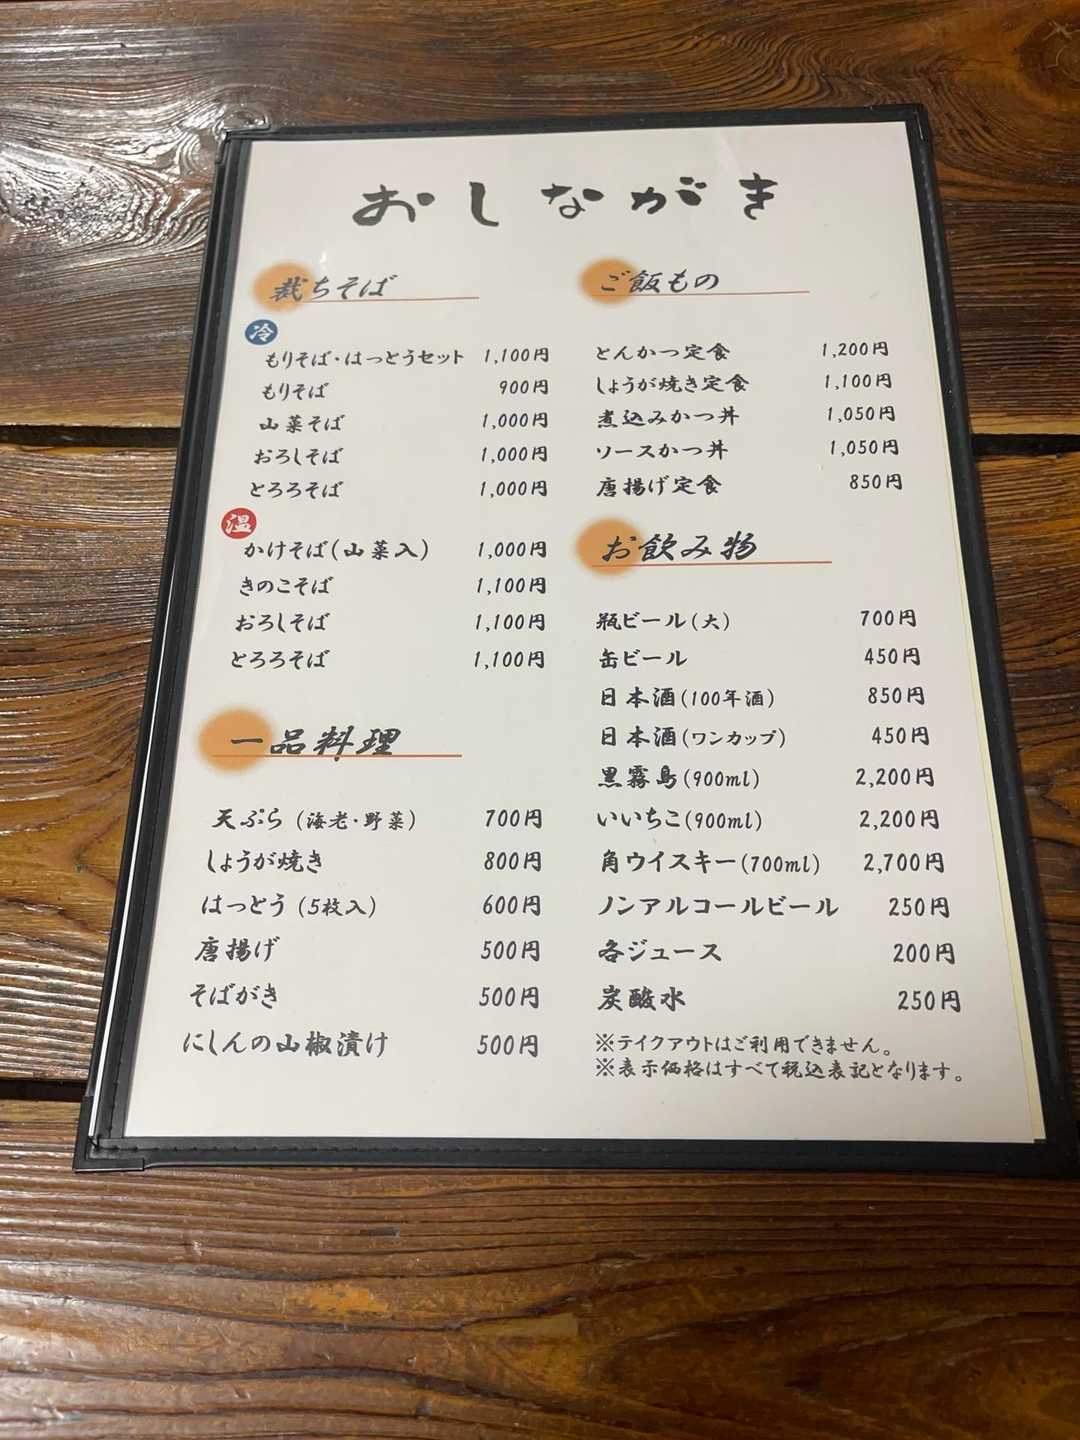 おしながき
裁ちそば
冷
もりそば・はっとうセット 1,100円
もりそば 900円
山菜そば 1,000円
おろしそば 1,000円
とろろそば 1,000円
温
かけそば(山菜入) 1,000円
きのこそば 1,100円
おろしそば 1,100円
とろろそば 1,100円
一品料理
天ぷら(海老・野菜) 700円
しょうが焼き 800円
はっとう(5枚入) 600円
唐揚げ 500円
そばがき 500円
にしんの山椒漬け 500円
ご飯もの
とんかつ定食 1,200円
しょうが焼き定食 1,100円
煮込みかつ丼 1,050円
ソースかつ丼 1,050円
唐揚げ定食 850円
お飲み物
瓶ビール(大) 700円
缶ビール 450円
日本酒(100年酒) 850円
日本酒(ワンカップ) 450円
黒霧島(900ml) 2,200円
いいちこ(900ml) 2,200円
角ウイスキー(700ml) 2,700円
ノンアルコールビール 250円
各ジュース 200円
炭酸水 250円
※テイクアウトはご利用できません。
※表示価格はすべて税込表記となります。